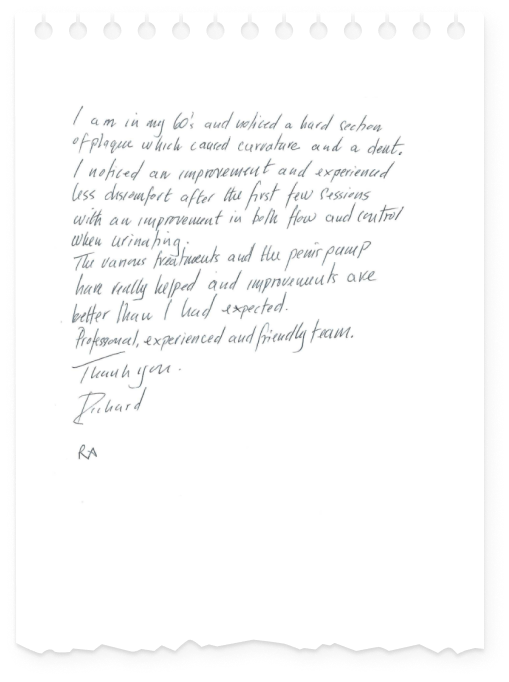 I am in my 60's and noticed a hard section
of plaque which caused curvature and a dent.
I noticed an improvement and experienced
less discomfort after the first few sessions
with an improvement in both flow and control
when urinating.
The various treatments and the penis pump
have really helped and improvements are
better than I had expected.
Professional, experienced and friendly team.
Thank you.
Richard
RA